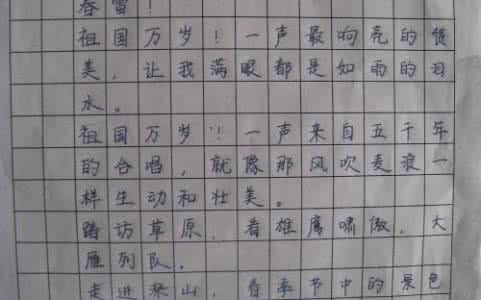 春雷！
祖国万岁！一声最响亮的赞
美，让我满眼都是如雨的泪
水。
祖国万岁！一声来自五千年
的合唱，就像那风吹麦浪一
样生动和壮美。
踏访草原，看雄鹰啸傲，大
雁列队。
走进山，看季节中的景色